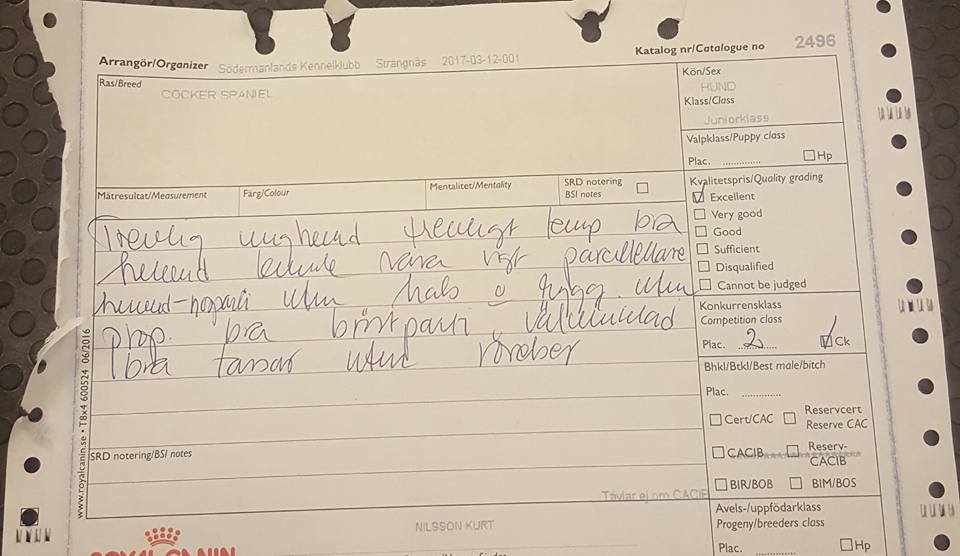 Arrangör/Organizer Södermanlands Kennelklubb Strängnäs 2017-03-12-001
Katalog nr/Catalogue no 2496
Ras/Breed
COCKER SPANIEL
Kön/Sex
HUND
Klass/Class
Juniorklass
Valpklass/Puppy class
Plac. .............. Hp
Mätresultat/Measurement Färg/Colour Mentalitet/Mentality SRD notering
BSI notes
Kvalitetspris/Quality grading
Excellent
Very good
Good
Sufficient
Disqualified
Cannot be judged
Trevlig unghund trevligt temp bra
huvud kunde vara parallellare
huvud-nosparti utm hals o rygg. utm
prop. bra bröstparti, välvinklad
bra tassar utm rörelser
Konkurrensklass
Competition class
Plac. 2 Ck
Bhkl/Btkl/Best male/bitch
Plac. ..............
Cert/CAC Reservcert
Reserve CAC
CACIB Reserv-
CACIB
BIR/BOB BIM/BOS
SRD notering/BSI notes
Tävlar ej om CACIB
NILSSON KURT
Avels-/uppfödarklass
Progeny/breeders class
Plac. .............. Hp
www.royalcanin.se • T8x4 600524 06/2016
ROYAL CANIN